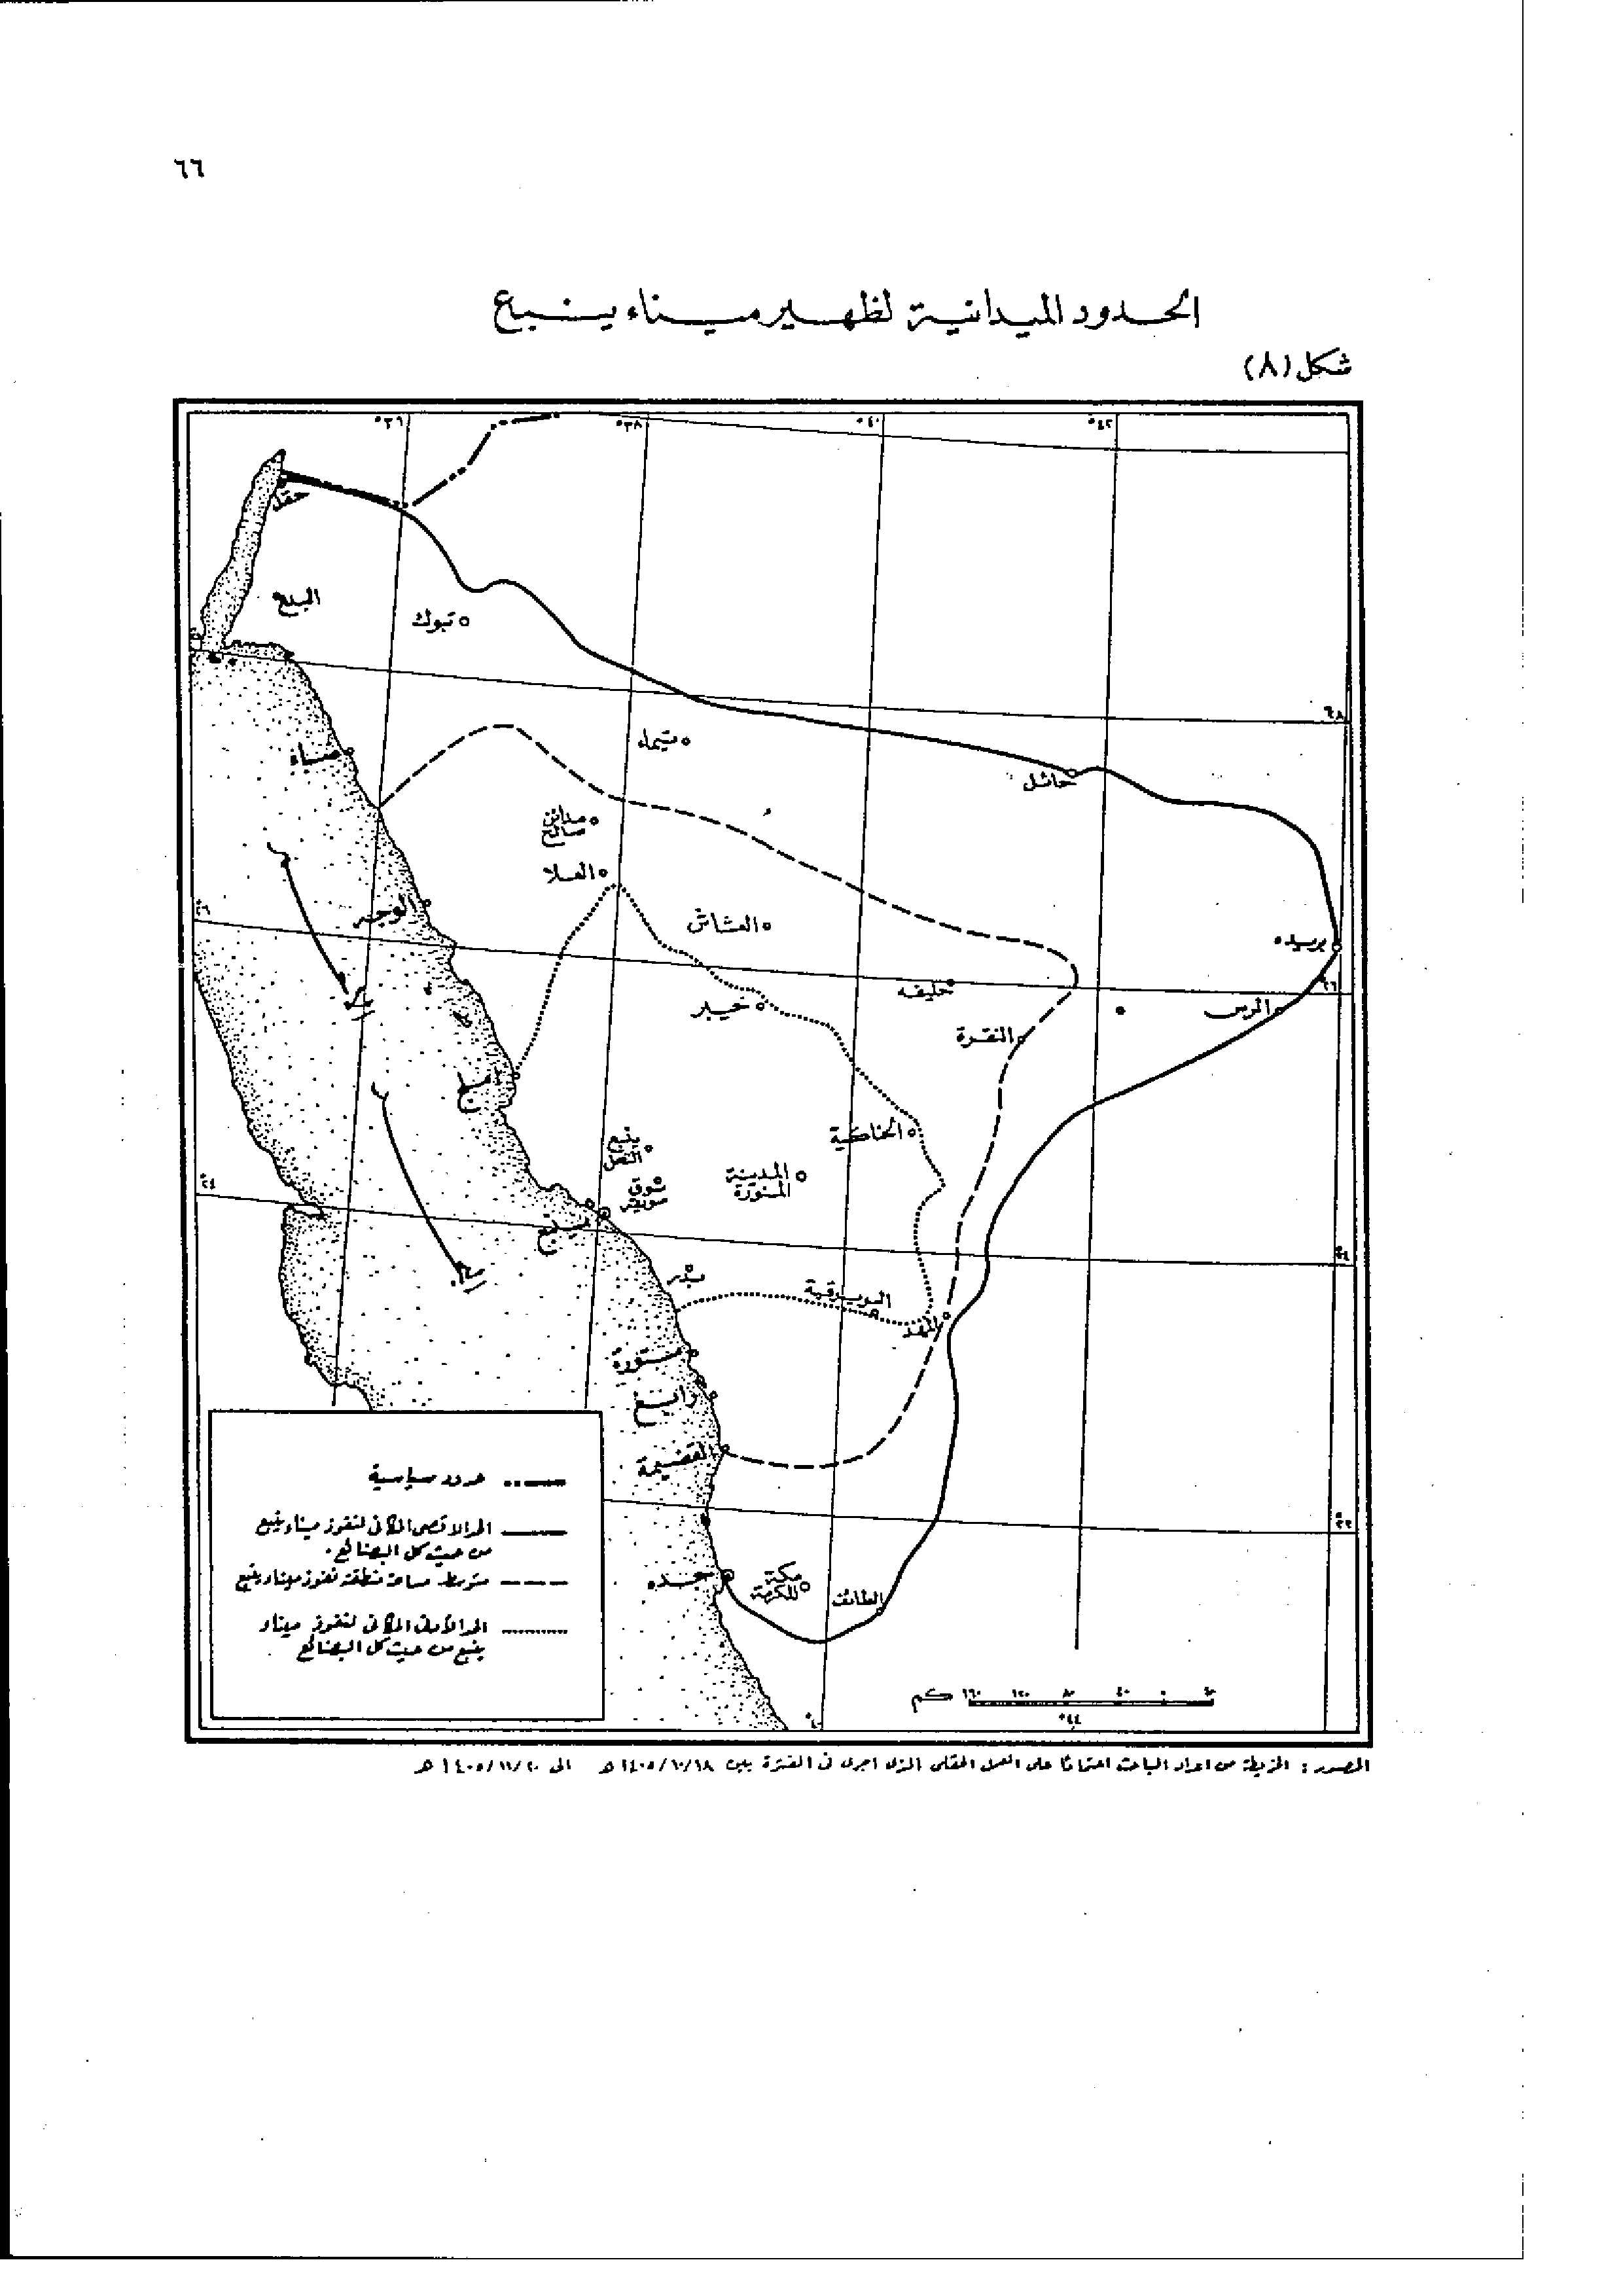 ٦٦
الحدود الميدانية لظهير ميناء ينبع
شكل (٨)
٣٦°
٣٨°
٤٠°
٤٢°
حقل
البدع
تبوك
٢٨
ضباء
تيماء
حائل
مدائن
صالح
العلا
الوجه
العشاش
بريده
٢٦
٢٦
حليفه
خيبر
الرس
النقرة
البحر
املج
الحناكية
ينبع
النخل
المدينة
المنورة
سويق
٢٤
ينبع
٢٤
الأحمر
بدر
السويرقية
المهد
مستورة
رابغ
القضيمة
٢٢
جده
مكة
المكرمة
الطائف
حدود سياسية
الحد الاقصى المكاني لنفوذ ميناء ينبع
من حيث كل البضائع.
متوسط مساحة منطقة نفوذ ميناء ينبع
الحد الأدنى المكاني لنفوذ ميناء
ينبع من حيث كل البضائع
كم ١٦٠ ١٢٠ ٨٠ ٤٠ ٠ ٤٠
٤٠°
٤٤°
المصدر : الخريطة من اعداد الباحث اعتمادًا على العمل الحقلي الذي اجري في الفترة بين ١٤٠٥/١٠/١٨ هـ الى ١٤٠٥/١١/٢٠ هـ